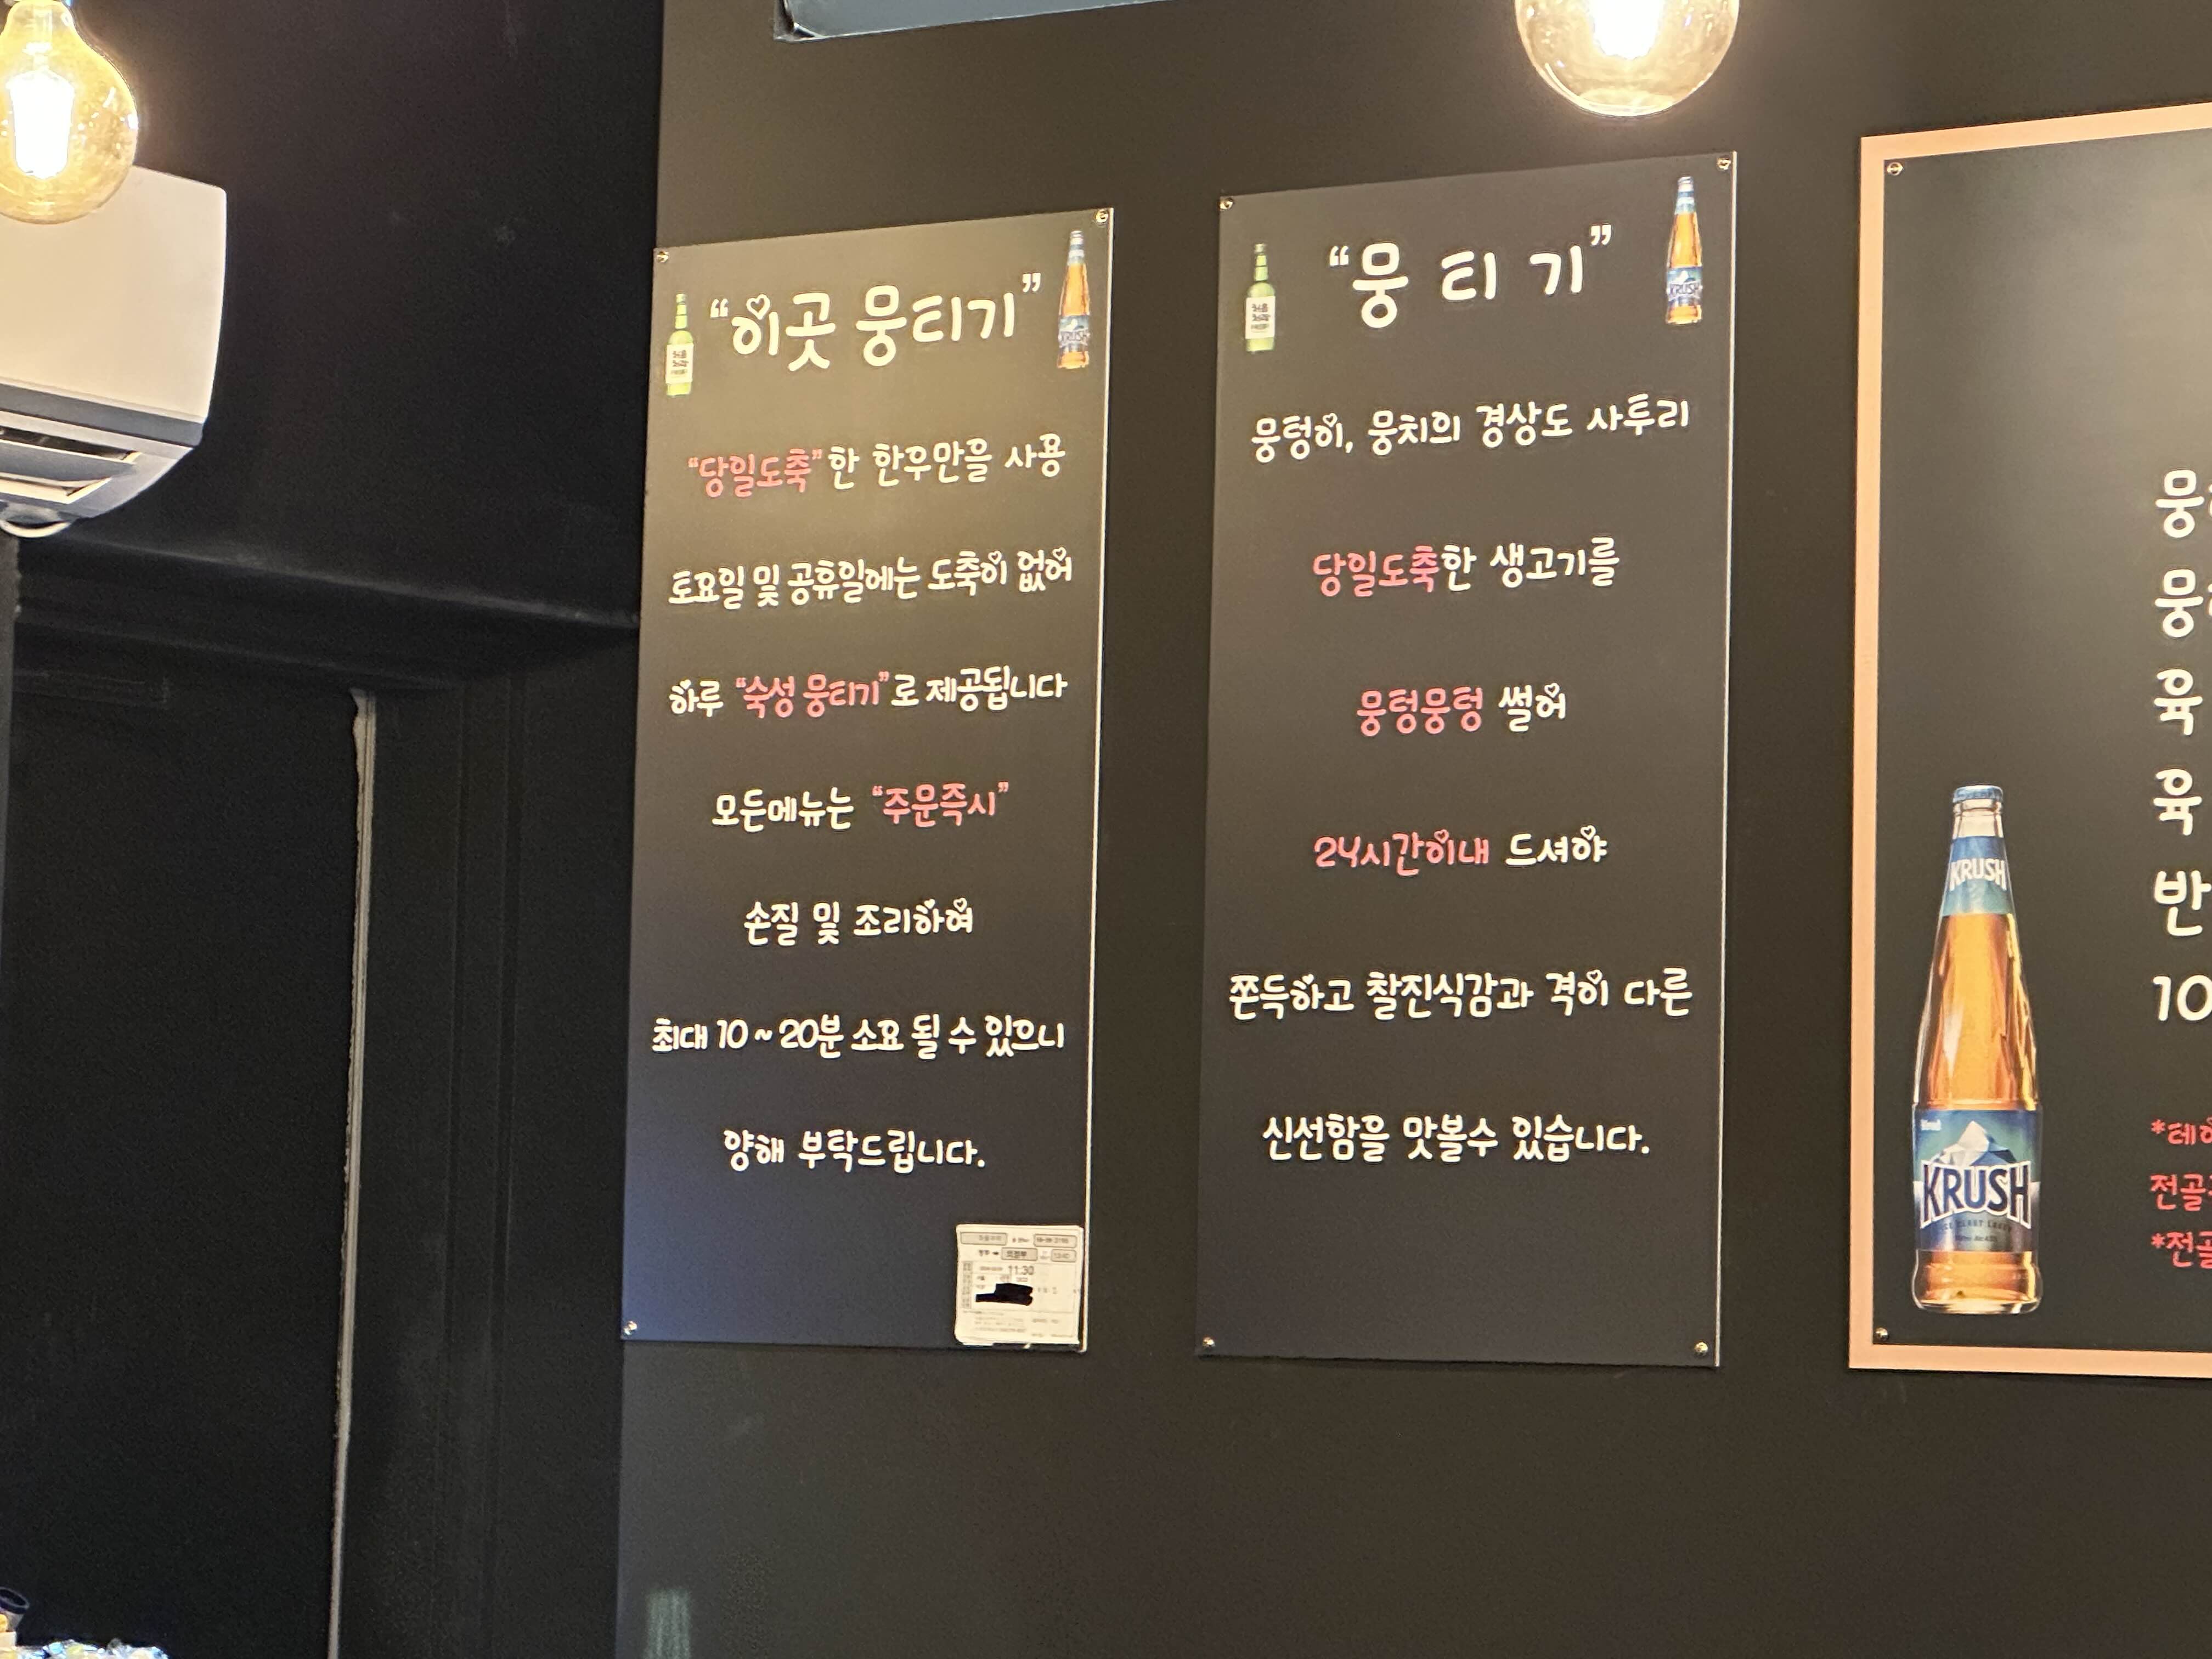 “이곳 뭉티기”
“당일도축”한 한우만을 사용
토요일 및 공휴일에는 도축이 없어
하루 “숙성 뭉티기”로 제공됩니다
모든메뉴는 “주문즉시”
손질 및 조리하여
최대 10 ~ 20분 소요 될 수 있으니
양해 부탁드립니다.
11:30
“뭉 티 기”
뭉텅이, 뭉치의 경상도 사투리
당일도축한 생고기를
뭉텅뭉텅 썰어
24시간이내 드셔야
쫀득하고 찰진식감과 격이 다른
신선함을 맛볼수 있습니다.
KRUSH
뭉
뭉
육
육
반
10
KRUSH
*테이
전골
*전골